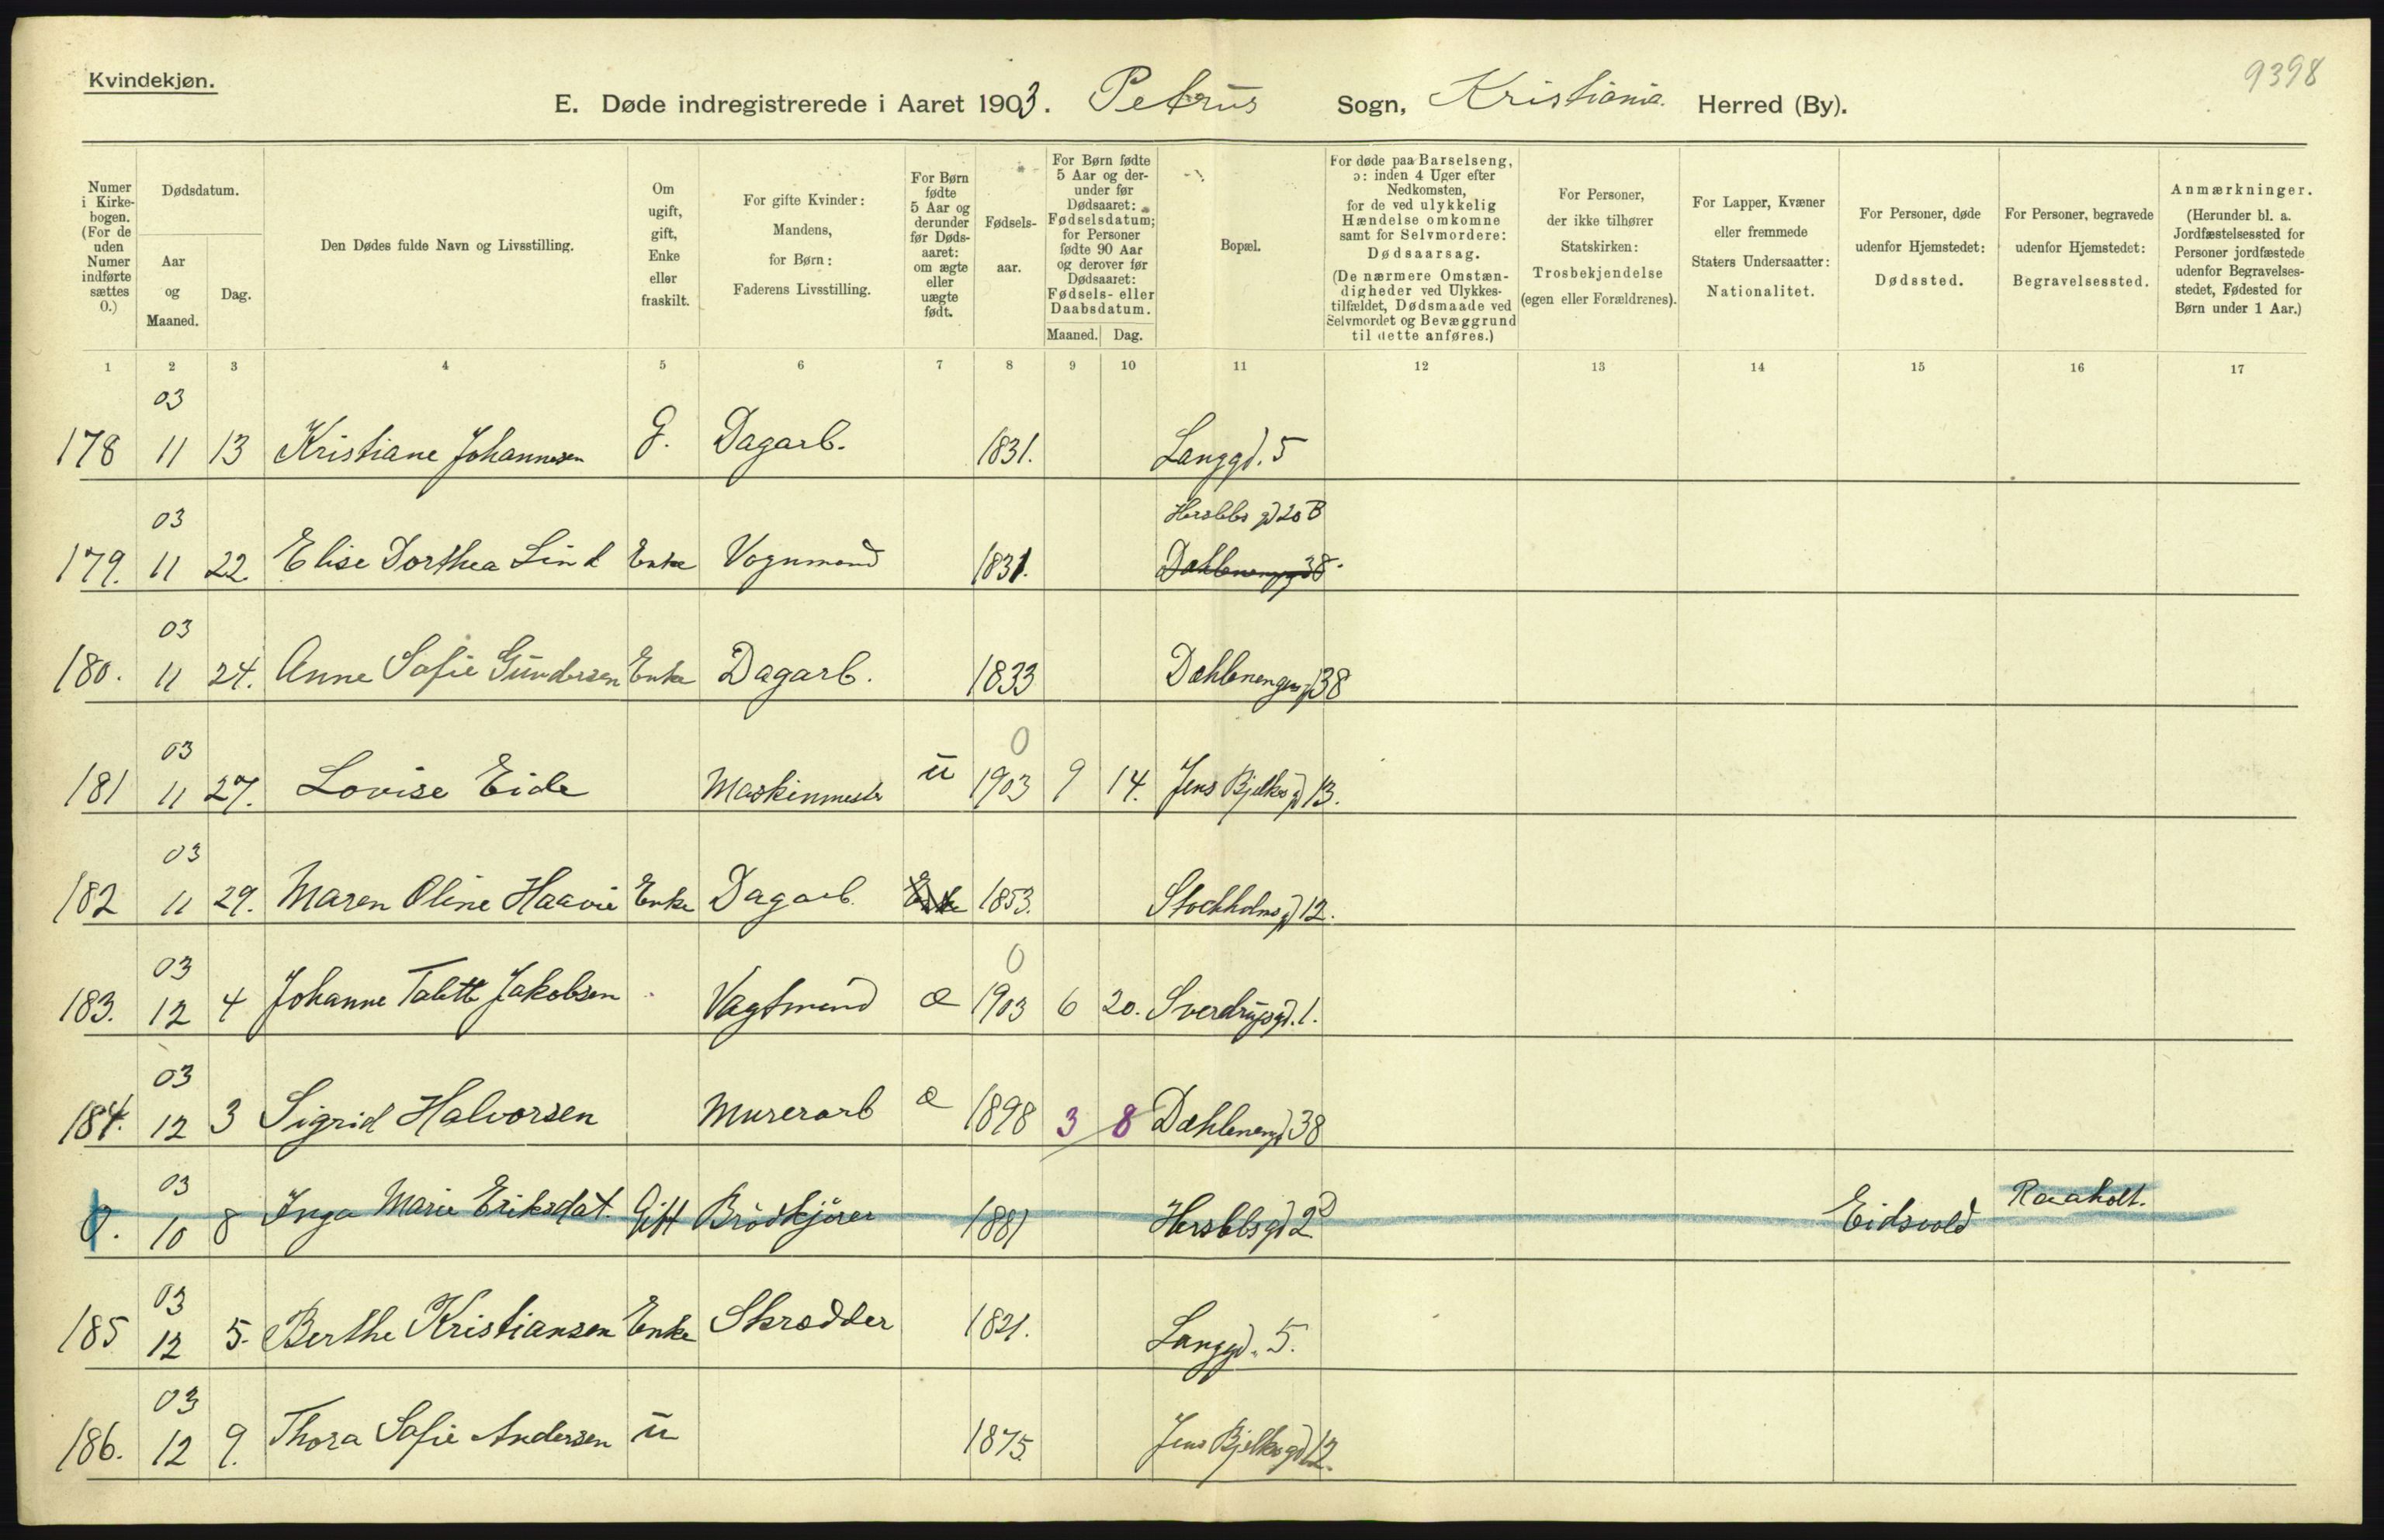 Kvindekjøn.
9398
E. Døde indregistrerede i Aaret 1903. Petrus Sogn, Kristiania Herred (By).
Numer i Kirkebogen. (For de uden Numer indførte sættes 0.)
Dødsdatum.
Aar og Maaned.
Dag.
Den Dødes fulde Navn og Livsstilling.
Om ugift, gift, Enke eller fraskilt.
For gifte Kvinder: Mandens, for Børn: Faderens Livsstilling.
For Børn fødte 5 Aar og derunder før Dødsaaret: om ægte eller uægte født.
Fødselsaar.
For Børn fødte 5 Aar og derunder før Dødsaaret: Fødselsdatum; for Personer fødte 90 Aar og derover før Dødsaaret: Fødsels- eller Daabsdatum.
Maaned. Dag.
Bopæl.
For døde paa Barselseng, ɔ: inden 4 Uger efter Nedkomsten, for de ved ulykkelig Hændelse omkomne samt for Selvmordere: Dødsaarsag. (De nærmere Omstændigheder ved Ulykkestilfældet, Dødsmaade ved Selvmordet og Bevæggrund til dette anføres.)
For Personer, der ikke tilhører Statskirken: Trosbekjendelse (egen eller Forældrenes).
For Lapper, Kvæner eller fremmede Staters Undersaatter: Nationalitet.
For Personer, døde udenfor Hjemstedet: Dødssted.
For Personer, begravede udenfor Hjemstedet: Begravelsessted.
Anmærkninger. (Herunder bl. a. Jordfæstelsessted for Personer jordfæstede udenfor Begravelsesstedet, Fødested for Børn under 1 Aar.)
1 2 3 4 5 6 7 8 9 10 11 12 13 14 15 16 17
03
178 11 13 Kristiane Johannesen g. Dagarb. 1831. Langgd. 5
03 Herslebs gd 20 B
179. 11 22. Elise Dorthea Lind Enke Vognmand 1831. Dahlenenggd 38.
03
180. 11 24. Anne Sofie Gundersen Enke Dagarb. 1833 Dæhlenengens gd 38
03 0
181 11 27. Lovise Eide Maskinmester u 1903 9 14. Jens Bjelkes gd 13.
03
182 11 29. Maren Oline Haavie Enke Dagarb. Enke 1853. Stockholms gd 12.
03 0
183. 12 4 Johanne Talette Jakobsen Vagtmand æ 1903 6 20. Sverdrupsgd. 1.
03
184. 12 3 Sigrid Halvorsen Murerarb æ 1898 3 8 Dæhlenengd 38
03
0. 10 8 Inga Marie Eriksdat. Gift Brødkjører 1881 Herslebsgd 2 D Eidsvold Raaholt.
03
185 12 5. Berthe Kristiansen Enke Skrædder 1821. Langgd. 5.
03
186. 12 9. Thora Sofie Andersen u 1875. Jens Bjelkes gd 12.